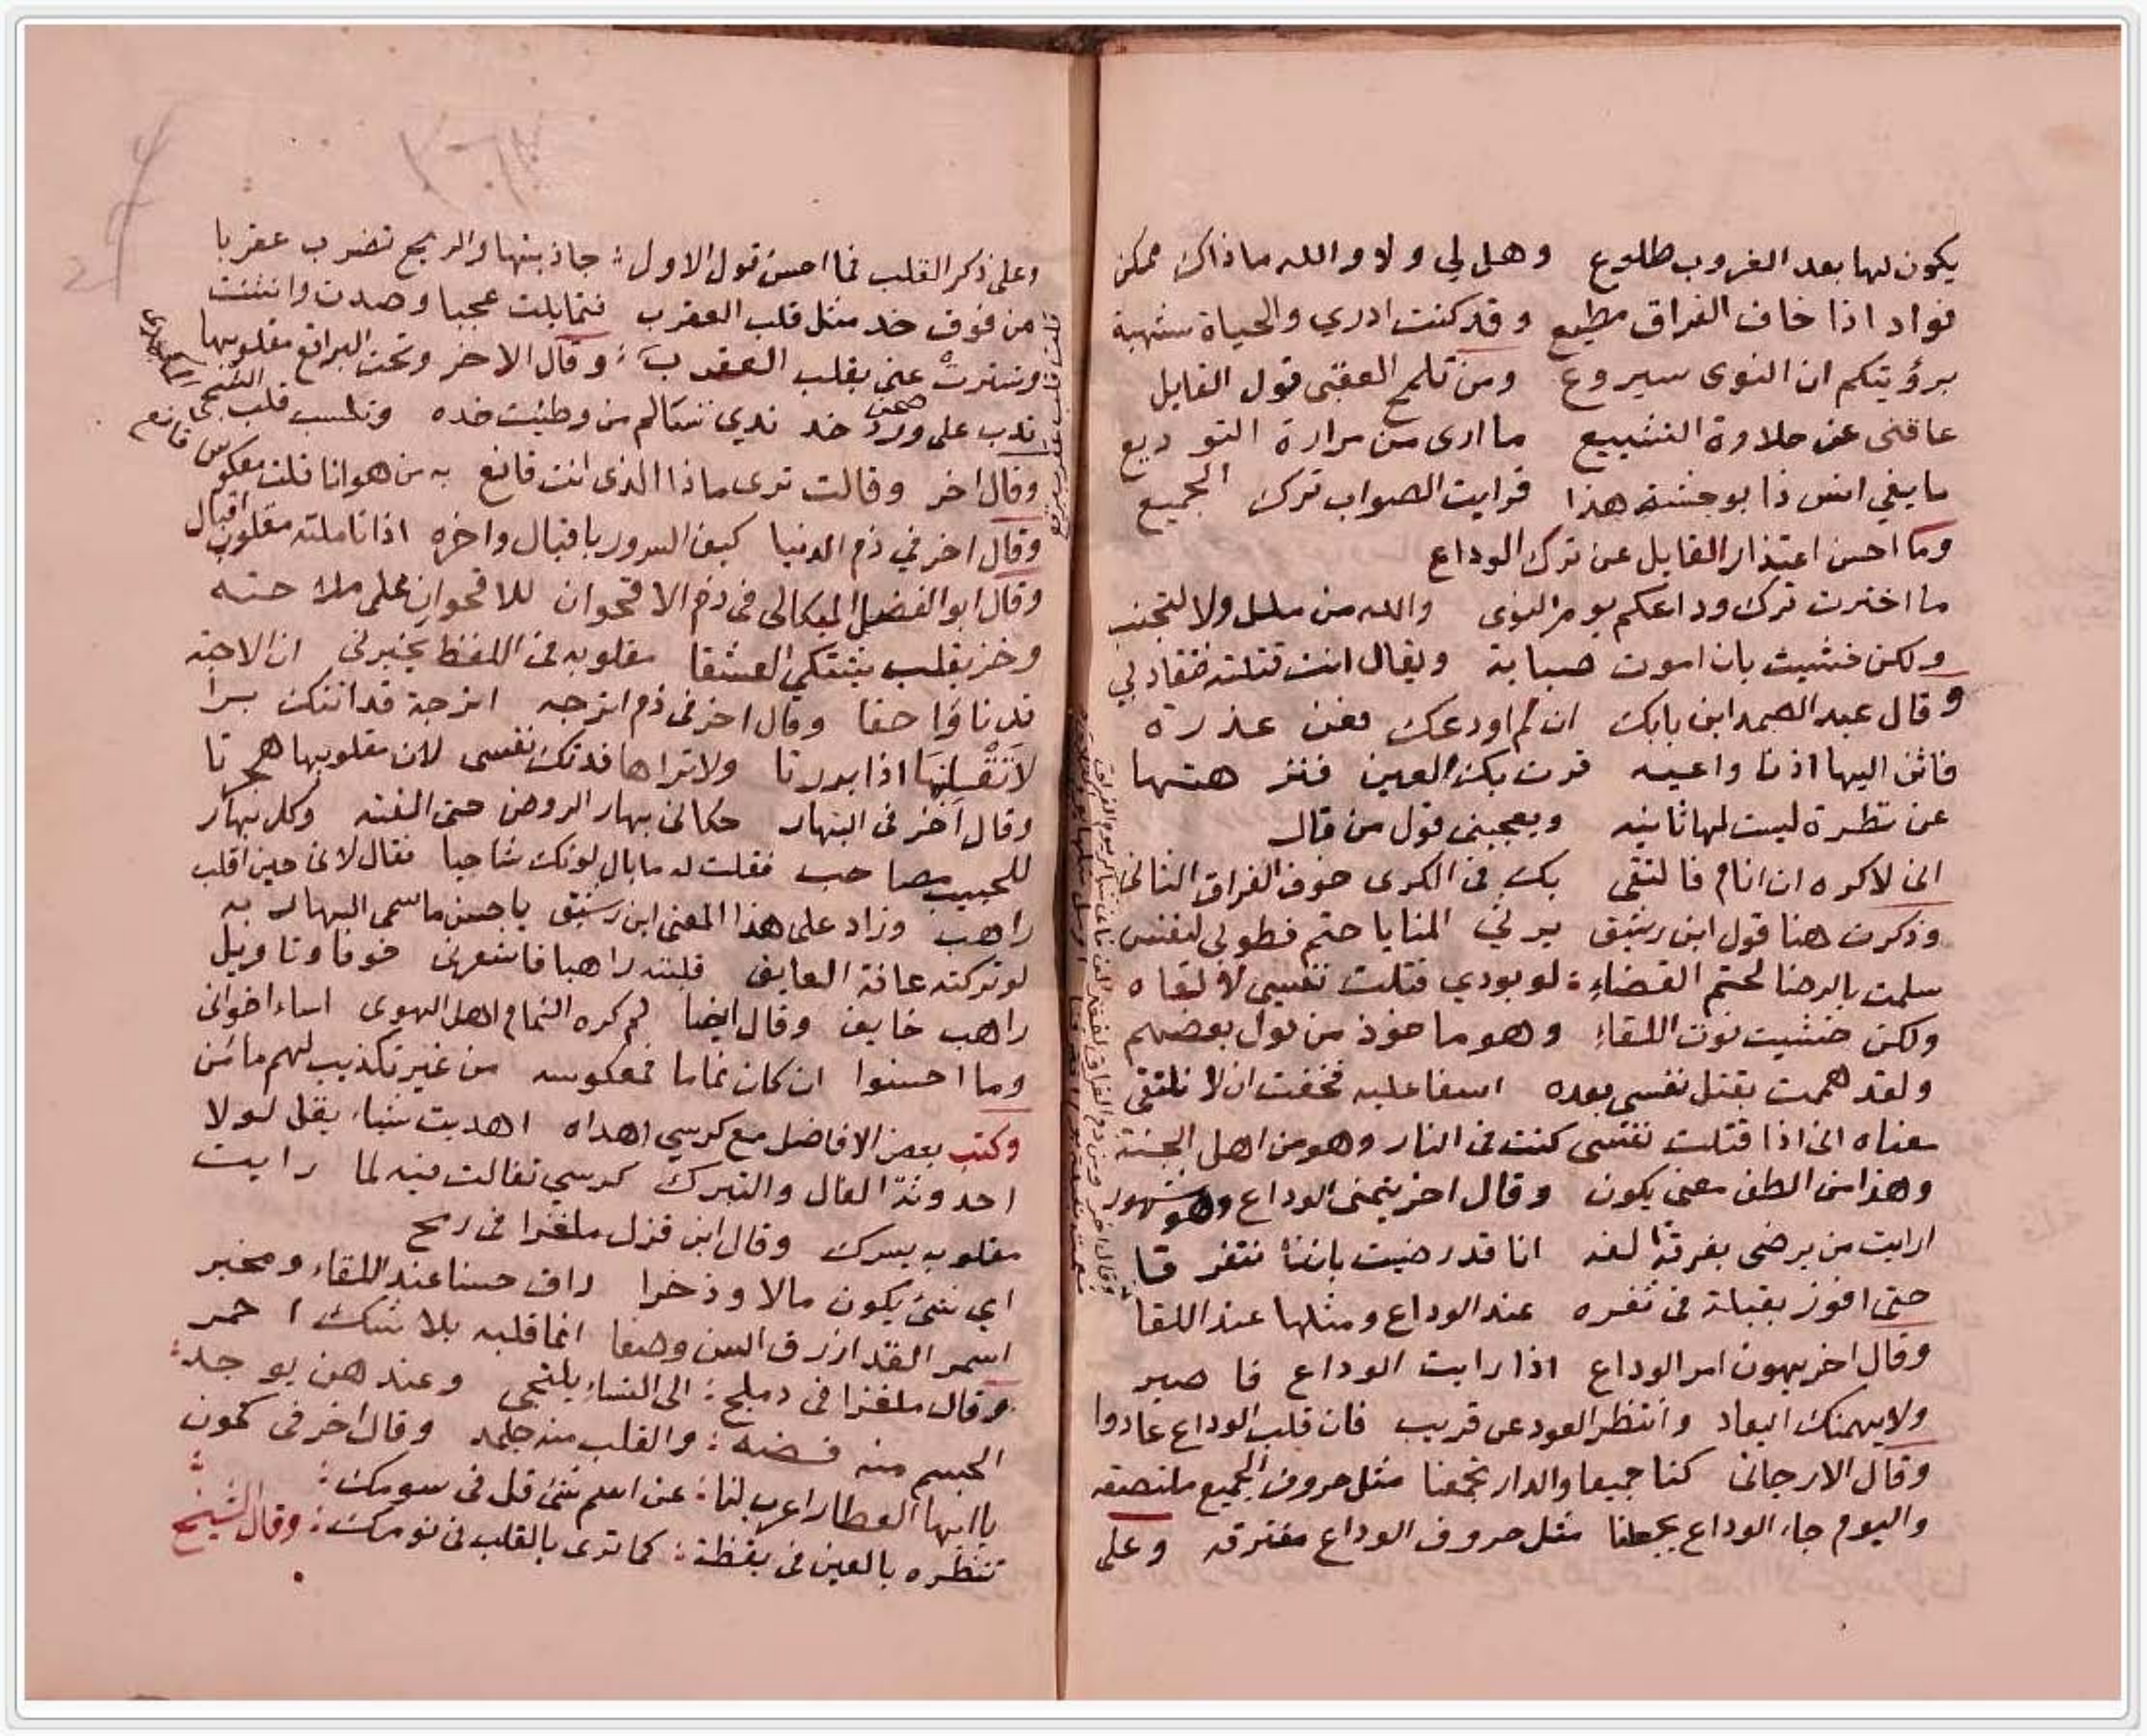 يكون لها بعد الغروب طلوع وهل لي ولا والله ما ذاك ممكن
فواد اذا خاف الفراق مطيع وقد كنت ادري والحياة شهية
برؤيتكم ان النوى سيروع ومن تلمح العقبى قول القايل
عاقنى عن حلاوة التشييع ما ارى من مرارة التوديع
ما يفي انس ذا بوحشة هذا فرايت الصواب ترك الجميع
وما احسن اعتذار القايل عن ترك الوداع
ما اخترت ترك وداعكم يوم النوى والله من ملل ولا لتجنب
ولكن خشيت بان اموت صبابة ويقال انت قتلته فتقاد بي
وقال عبد الصمد ابن بابك ان لم اودعك فعن عذرة
فاثن اليها اذنا واعيه قرت بك العين فنزهتها
عن نظرة ليست لها ثانيه ويعجبنى قول من قال
انى لاكره ان انام فالتقى بك فى الكرى خوف الفراق الثانى
وذكرت هنا قول ابن رشيق
سلمت بالرضا لحتم القضاء لو بودي قتلت نفسي لالقاه
ولكن خشيت فوت اللقاء وهو ماخوذ من قول بعضهم
ولقد هممت بقتل نفسى بعده اسفا عليه فخفت ان لا نلتقى
معناه انى اذا قتلت نفسى كنت فى النار وهو من اهل الجنة
وهذا من الطف معنى يكون وقال اخر يتمنى الوداع وهو مشهور
ارايت من يرضى بفرقة الفه انا قد رضيت باننا نتفرقا
حتى افوز بقبلة فى ثغره عند الوداع ومثلها عند اللقا
وقال اخر يهون امر الوداع اذا رايت الوداع فاصبر
ولا يهمنك البعاد وانتظر العود عن قريب فان قلب الوداع عادوا
وقال الارجانى كنا جميعا والدار تجمعنا مثل حروف الجميع ملتصقه
واليوم جاء الوداع يجعلنا مثل حروف الوداع مفترقه وعلى
وعلى ذكر القلب فما احسن قول الاول جاذبتها والريح تضرب عقربا
من فوق خد مثل قلب العقرب فتمايلت عجبا وصدت وانثنت
وتسترت عنى بقلب العقرب وقال الاخر وتحت البراقع مقلوبها
تدب على ورد خد ندي تسالم من وطيت خده وتلسب قلب الشجي
صحن
وقال اخر وقالت ترى ماذا الذى انت قانع به من هوانا قلت معكوس قانع
وقال اخر في ذم الدنيا كيف السرور باقبال واخره اذا تاملته مقلوب اقبال
وقال ابو الفضل الميكالى فى ذم الاقحوان للاقحوان على
وخز بقلب يشتكي العشقا مقلوبه فى اللفظ يخبرنى ان الاحبة
قد ناوا حقا وقال اخر فى ذم اترجه اترجة قد اتتك برا
لا تقبلنها اذا بررتا ولا تراها فدتك نفسى لان مقلوبها هجرتا
وقال آخر فى البهار حكانى بهار الروض حتى الفته وكل بهار
للحبيب مصاحب فقلت له ما بال لونك شاحبا فقال لانى حين اقلب
راهب وزاد على هذا المعنى ابن رشيق يا حسن ما سمى البهار به
لو تركته عافة العايف قلبته راهبا فاشعرنى خوفا وتاويل
راهب خايف وقال ايضا لم كره النمام اهل الهوى اساء اخوانى
وما احسنوا ان كان نماما فمعكوسه من غير تكذيب لهم مامن
وكتب بعض الافاضل مع كرسي اهداه اهديت شيا يقل لولا
احدوثة الفال والتبرك كرسي تفالت فيه لما رايت
مقلوبه يسرك وقال ابن قزل ملغزا فى رمح
اي شئ يكون مالا وذخرا راق حسنا عند اللقاء ومخبر
اسمر القد ازرق السن وصفا انما قلبه بلا شك احمر
وقال ملغزا فى دملج الى النساء يلتجى وعندهن يوجد
الجسم منه فضة والقلب منه جلمد وقال اخر فى كمون
يا ايها العطار اعرب لنا عن اسم شئ قل فى سومك
تنظره بالعين فى يقظة كما ترى بالقلب فى نومك وقال الشيخ